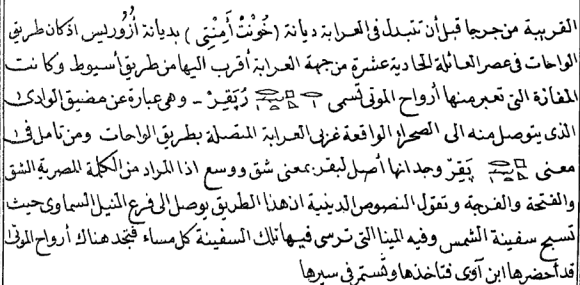 القريبة من جرجا قبل أن تتبدل فى العرابة ديانة (خُونْتْ أَمِنْتِى) بديانة أُزُوريس اذ كان طريق
الواحات فى عصر العائلة الحادية عشرة من جهة العرابة أقرب اليها من طريق أسيوط وكانت
المفازة التى تعبر منها أرواح الموتى تسمى رُبَقِرْ - وهى عبارة عن مضيق الوادى
الذى يتوصل منه الى الصحراء الواقعة غربى العرابة المتصلة بطريق الواحات ومن تأمل فى
معنى بَقِرْ وجد انها أصل لبقر بمعنى شق ووسع اذا المراد من الكلمة المصرية الشق
والفتحة والفرجة وتقول النصوص الدينية ان هذا الطريق يوصل الى فرع النيل السماوى حيث
تسبح سفينة الشمس وفيه المينا التى ترسى فيها تلك السفينة كل مساء فتجد هناك أرواح الموتى
قد أحضرها ابن آوى فتاخذها وتستمر فى سيرها